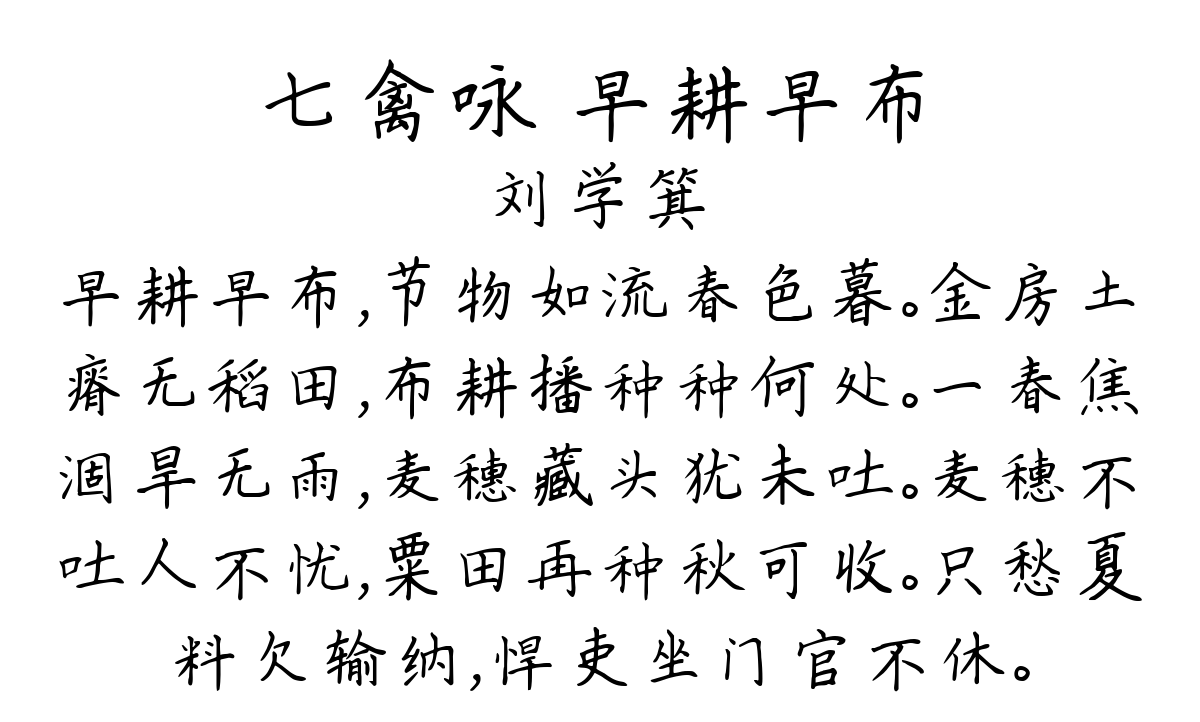 七禽咏 早耕早布
刘学箕
早耕早布,节物如流春色暮。金房土
瘠无稻田,布耕播种种何处。一春焦
涸旱无雨,麦穗藏头犹未吐。麦穗不
吐人不忧,粟田再种秋可收。只愁夏
料欠输纳,悍吏坐门官不休。